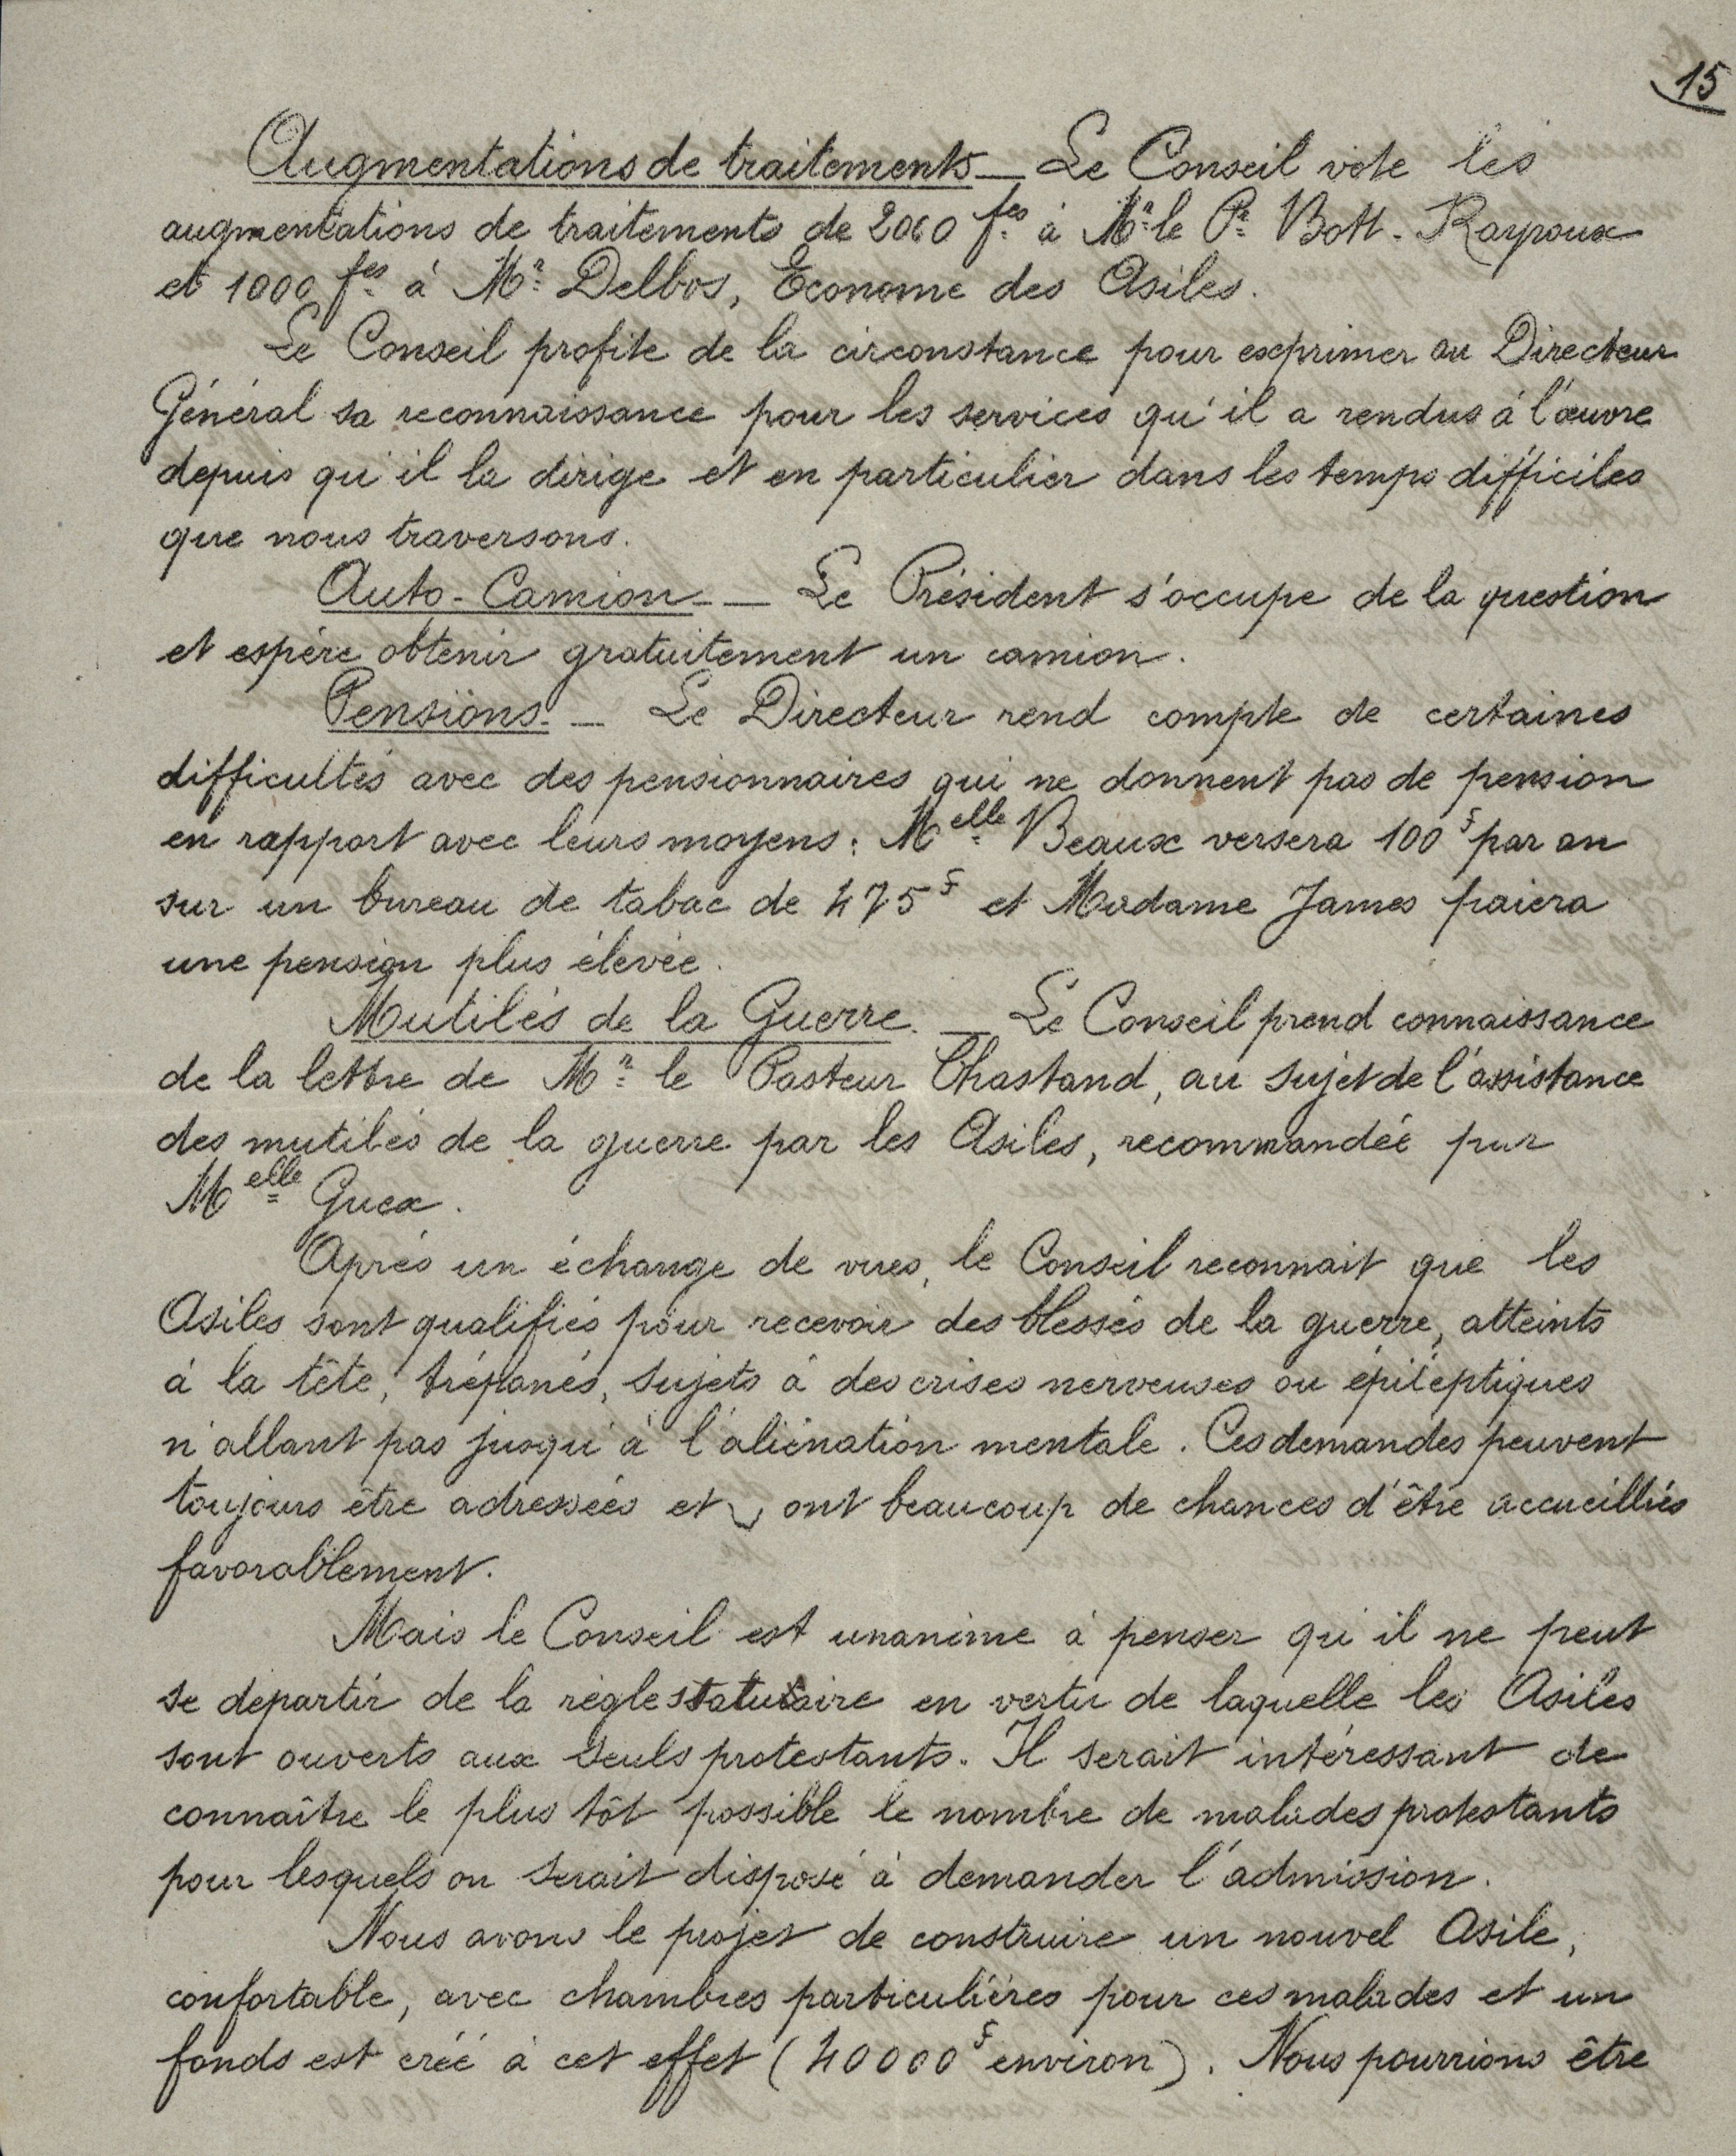 15
Augmentations de traitements — Le Conseil vote les
augmentations de traitements de 2000 fcs à Mr le Pr Bott - Rayroux
et 1000 fcs à Mr Delbos, Econome des Asiles.
Le Conseil profite de la circonstance pour exprimer au Directeur
Général sa reconnaissance pour les services qu'il a rendus à l'œuvre
depuis qu'il la dirige et en particulier dans les temps difficiles
que nous traversons.
Auto-Camion - — Le Président s'occupe de la question
et espère obtenir gratuitement un camion.
Pensions. — Le Directeur rend compte de certaines
difficultés avec des pensionnaires qui ne donnent pas de pension
en rapport avec leurs moyens : Melle Beaux versera 100 f par an
sur un bureau de tabac de 475 f et Madame James paiera
une pension plus élevée.
Mutilés de la Guerre. — Le Conseil prend connaissance
de la lettre de Mr le Pasteur Chastand, au sujet de l'assistance
des mutilés de la guerre par les Asiles, recommandée par
Melle Guex.
Après un échange de vues, le Conseil reconnait que les
Asiles sont qualifiés pour recevoir des blessés de la guerre, atteints
à la tête, trépanés, sujets à des crises nerveuses ou épileptiques
n'allant pas jusqu'à l'aliénation mentale. Ces demandes peuvent
toujours être adressées et ont beaucoup de chances d'être accueillies
favorablement.
Mais le Conseil est unanime à penser qu'il ne peut
se départir de la règle statutaire en vertu de laquelle les Asiles
sont ouverts aux seuls protestants. Il serait intéressant de
connaître le plus tôt possible le nombre de malades protestants
pour lesquels on serait disposé à demander l'admission.
Nous avons le projet de construire un nouvel Asile,
confortable, avec chambres particulières pour ces malades et un
fonds est créé à cet effet (40000 f environ). Nous pourrions être